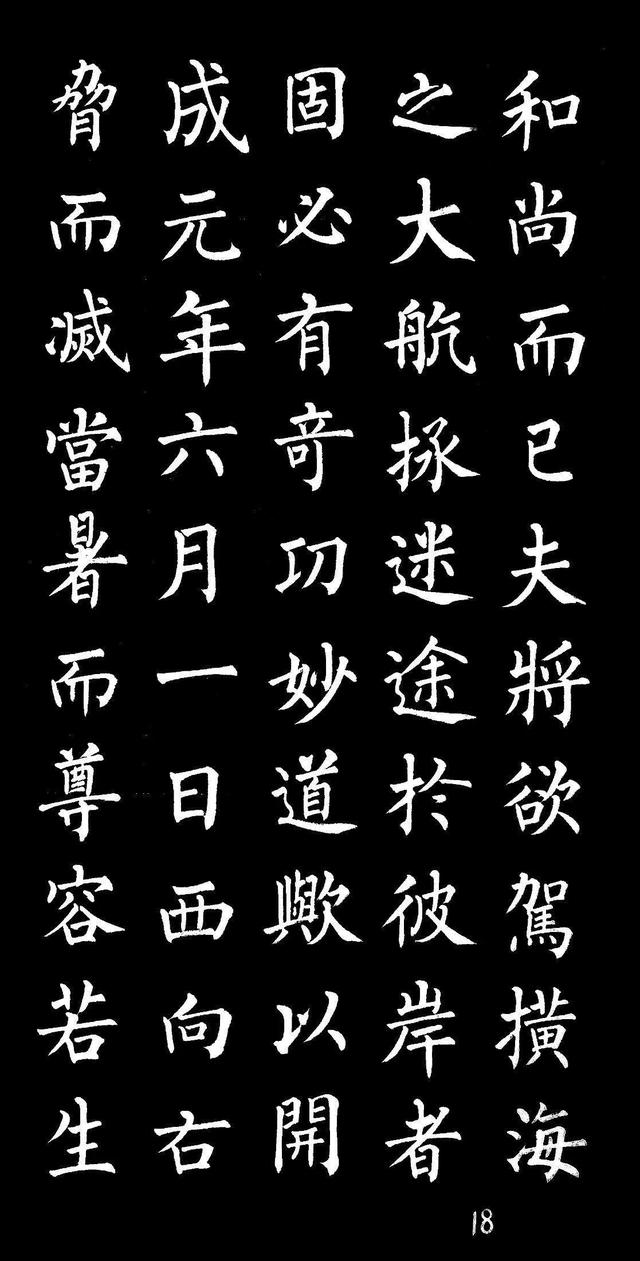 和尚而已夫將欲駕橫海
之大航拯迷途於彼岸者
固必有奇功妙道歟以開
成元年六月一日西向右
脅而滅當暑而尊容若生
18